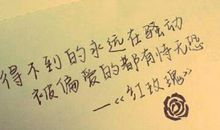 得不到的永远在骚动
被偏爱的都有恃无恐
—《红玫瑰》